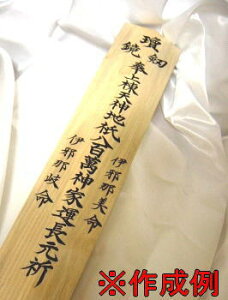 瓊 劔
鏡
伊邪那美命
奉上棟天神地祇八百萬神家運長元祈
伊邪那岐命
※作成例